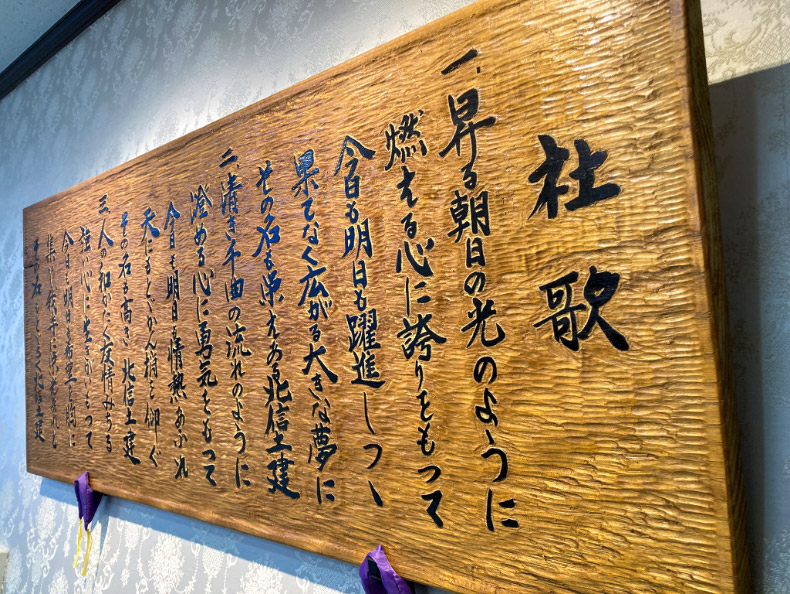 社歌
一、昇る朝日の光のように
燃える心に誇りをもって
今日も明日も躍進しつゝ
果てなく広がる大きな夢に
その名も栄えある北信土建
二、清き千曲の流れのように
澄める心に勇気をもって
今日も明日も情熱あふれ
天にもとどかん梢を仰ぐ
その名も高き北信土建
三、人の和かたく友情みつる
強い心に生きがいもって
今日も明日も希望に
その名もとどろく北信土建